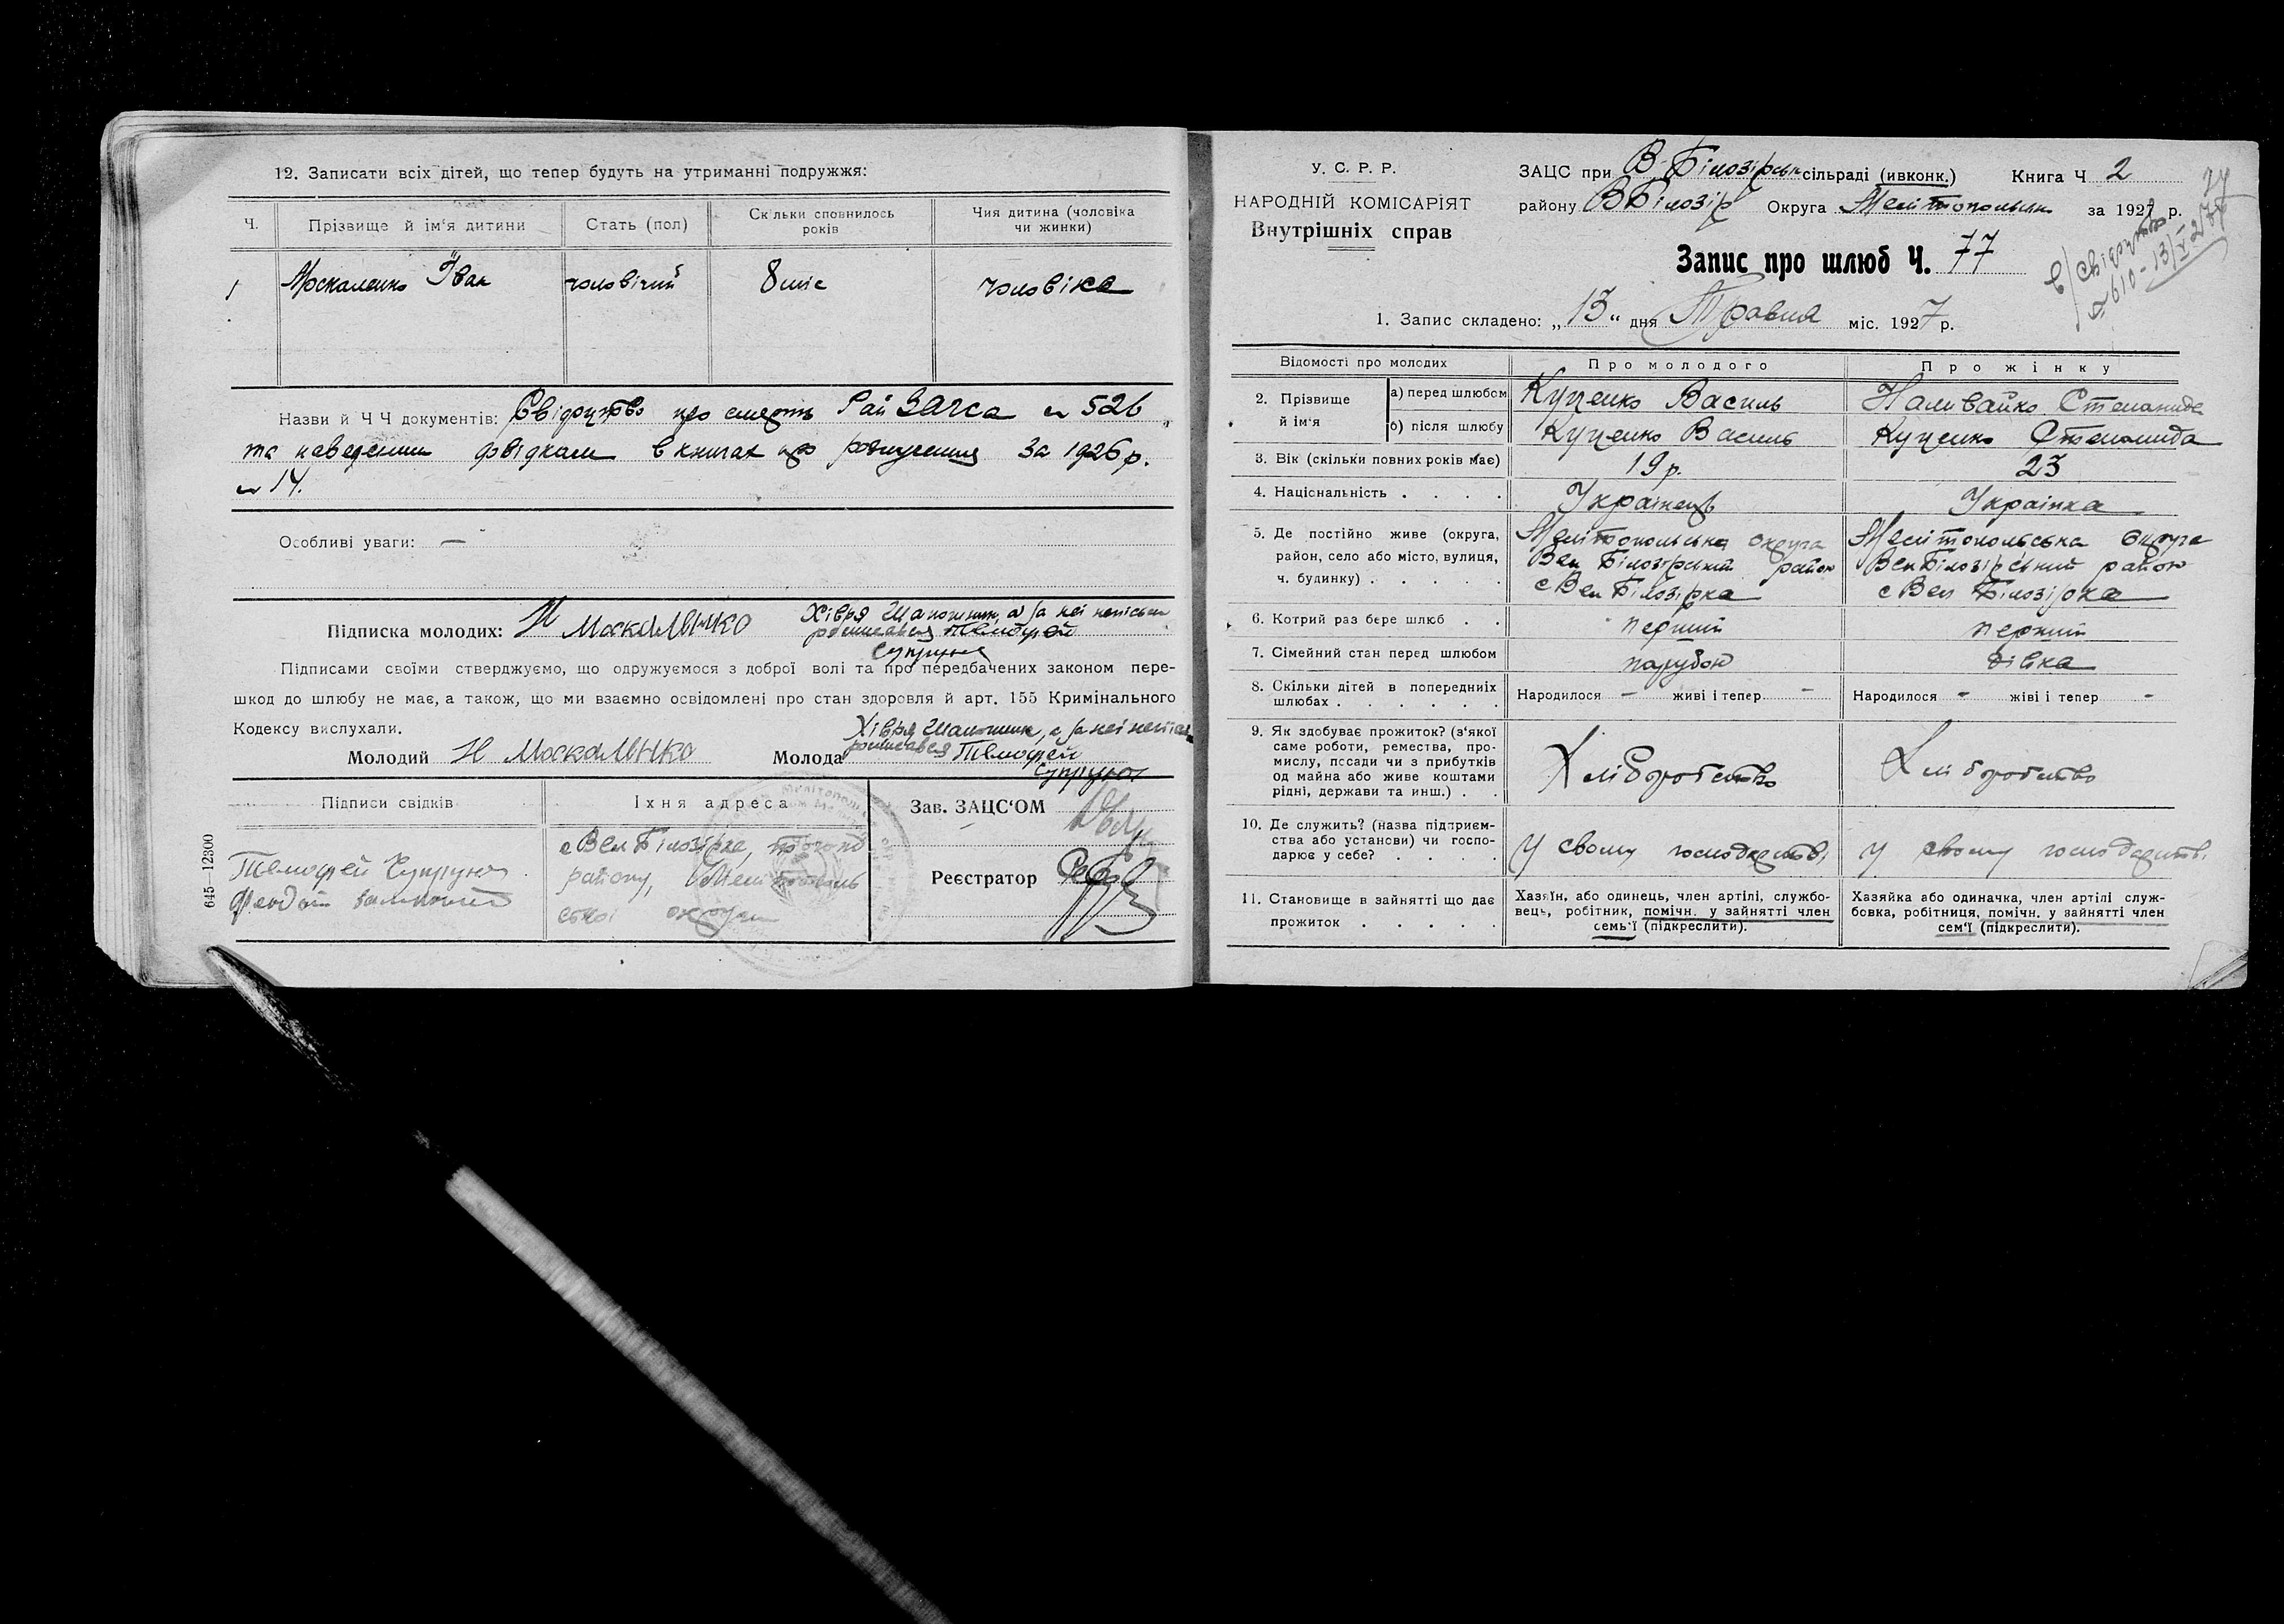 12. Записати всіх дітей, що тепер будуть на утриманні подружжя:
Ч. Прізвище й ім'я дитини Стать (пол) Скільки сповнилось років Чия дитина (чоловіка чи жинки)
1 Москаленко Іван чоловічий 8 міс чоловіка
Назви й Ч Ч документів: Свідоцтво про смерть Рай ЗАГСа № 526
та наведеним довідкам в книгах про розлучення за 1926 р.
№ 14.
Особливі уваги: —
Підписка молодих: Н Москаленко Хівря Шапошник, а за неї неписьм
росписався Тимофей
Супрун
Підписами своїми стверджуємо, що одружуємося з доброї волі та про передбачених законом пере-
шкод до шлюбу не має, а також, що ми взаємно освідомлені про стан здоровля й арт. 155 Кримінального
Кодексу вислухали.
Молодий Н Москаленко Молода Хівря Шапошник, а за неї непись
росписався Тимофей
Супрун
Підписи свідків Їхня адреса Зав. ЗАЦС'ОМ
Тимофей Супрун
с Вел Білозірка, того ж
району, Мелітополь
ської округи
Реєстратор
645—12300
У. С. Р. Р.
НАРОДНІЙ КОМІСАРІЯТ
Внутрішніх справ
ЗАЦС при В-Білозірськ сільраді (ивконк.) Книга Ч 2
району В Білозір Округа Мелітопольськ за 1927 р.
Запис про шлюб Ч. 77
1. Запис складено: „13" дня Травня міс. 1927 р.
Відомості про молодих Про молодого Про жінку
2. Прізвище й ім'я а) перед шлюбом Куценко Василь Наливайко Степанида
б) після шлюбу Куценко Василь Куценко Степанида
3. Вік (скільки повних років має) 19 р. 23
4. Національність Українець Українка
5. Де постійно живе (округа, район, село або місто, вулиця, ч. будинку)
Мелітопольська округа
Вел Білозірський район
с Вел Білозірка
Мелітопольська округа
Вел Білозірський район
с Вел Білозірка
6. Котрий раз бере шлюб перший перший
7. Сімейний стан перед шлюбом парубок дівка
8. Скільки дітей в попередніх шлюбах Народилося - живі і тепер - Народилося - живі і тепер -
9. Як здобуває прожиток? (з'якої
саме роботи, ремества, про-
мислу, посади чи з прибутків
од майна або живе коштами
рідні, держави та инш.)
Хліборобство Хліборобство
10. Де служить? (назва підприєм-
ства або установи) чи госпо-
дарює у себе?
У своему господарстві У своему господарстві
11. Становище в зайнятті що дає
прожиток
Хазяїн, або одинець, член артілі, службо-
вець, робітник, помічн. у зайнятті член
семь'ї (підкреслити).
Хазяйка або одиначка, член артілі служ-
бовка, робітниця, помічн. у зайнятті член
сем'ї (підкреслити).